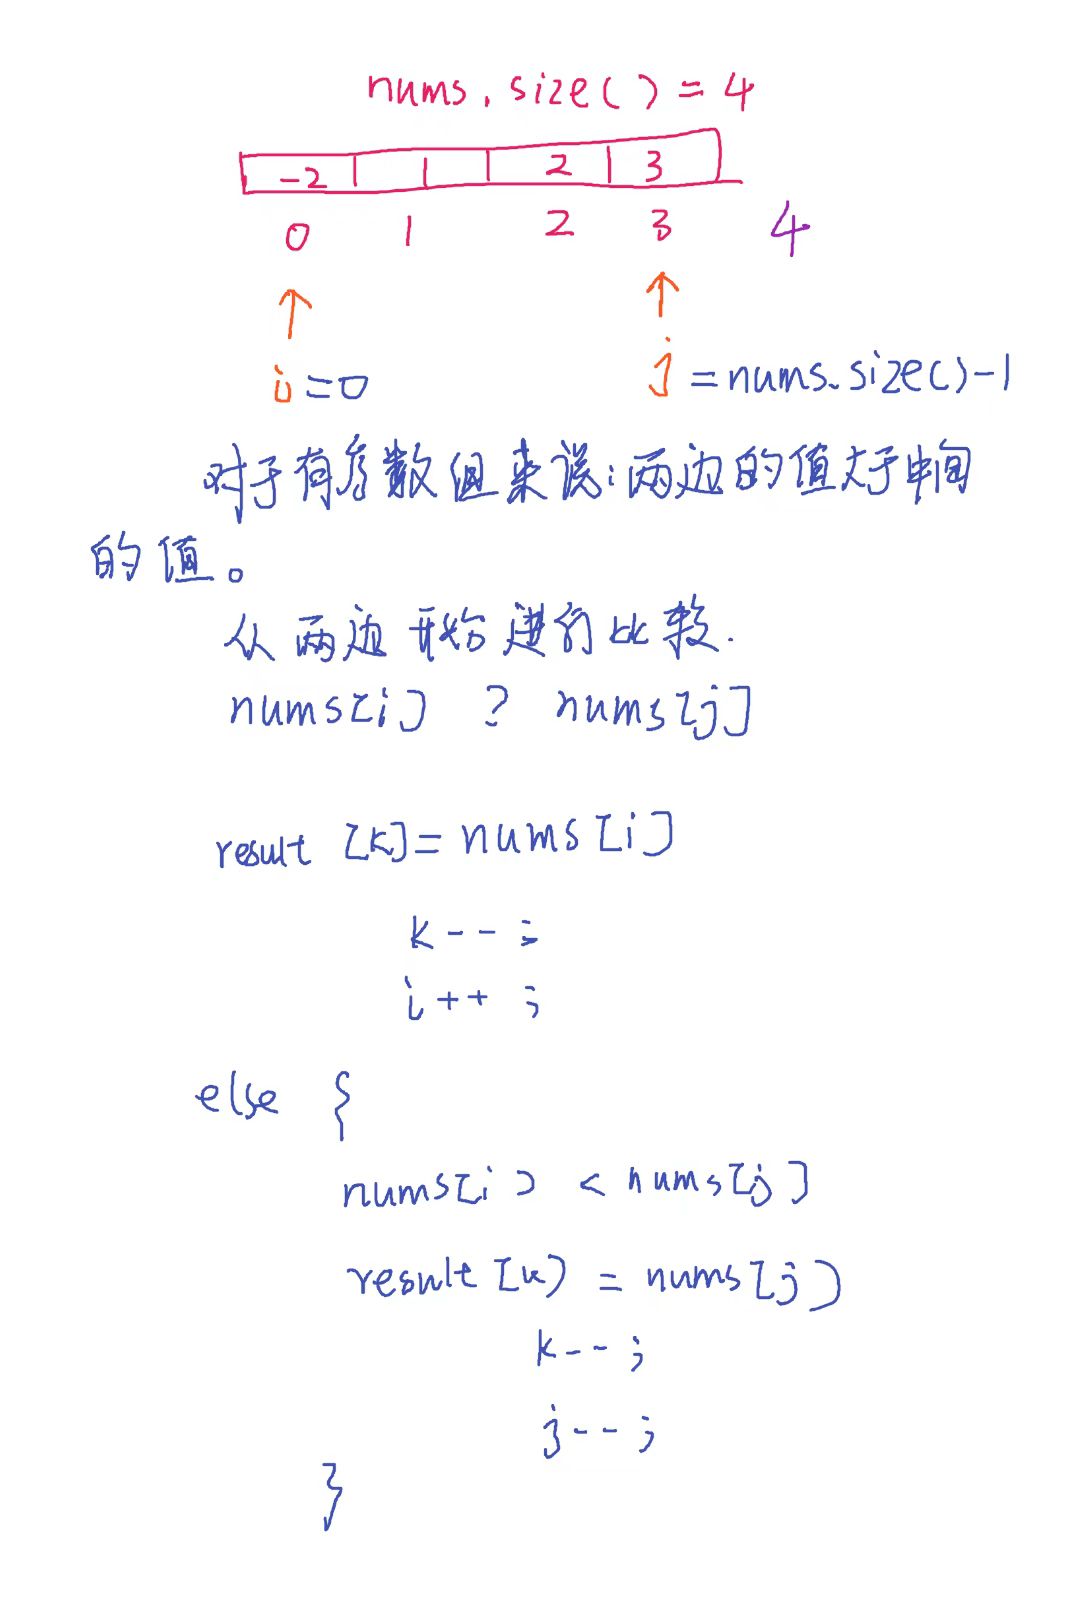 nums.size()=4
-2 1 2 3
0 1 2 3 4
i=0 j=nums.size()-1
对于有序数组来说:两边的值大于中间
的值。
从两边开始进行比较.
nums[i] ? nums[j]
result [k]=nums[i]
k--;
i++;
else {
nums[i] < nums[j]
result[k] = nums[j]
k--;
j--;
}